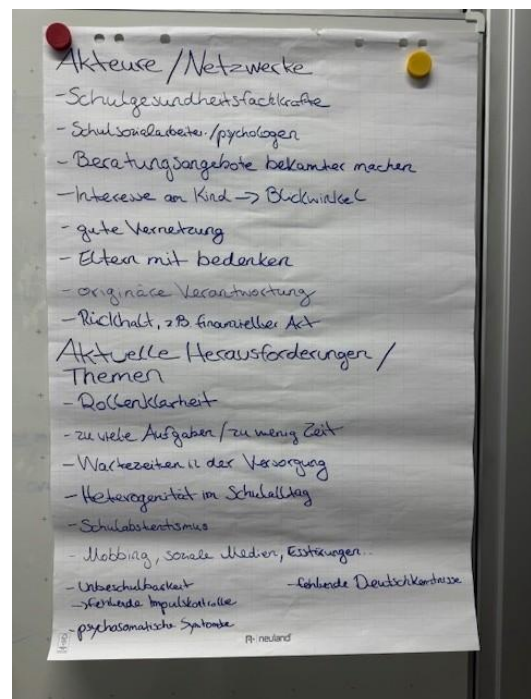 Akteure / Netzwerke
- Schulgesundheitsfachkräfte
- Schulsozialarbeiter/psychologen
- Beratungsangebote bekannter machen
- Interesse am Kind -> Blickwinkel
- gute Vernetzung
- Eltern mit bedenken
- originäre Verantwortung
- Rückhalt, z.B. finanzieller Art
Aktuelle Herausforderungen /
Themen
- Rollenklarheit
- zu viele Aufgaben / zu wenig Zeit
- Wartezeiten in der Versorgung
- Heterogenität im Schulalltag
- Schulabsentismus
- Mobbing, soziale Medien, Essstörungen...
- Unbeschulbarkeit - fehlende Deutschkenntnisse
-> fehlende Impulskontrolle
- psychosomatische Symptome
neuland